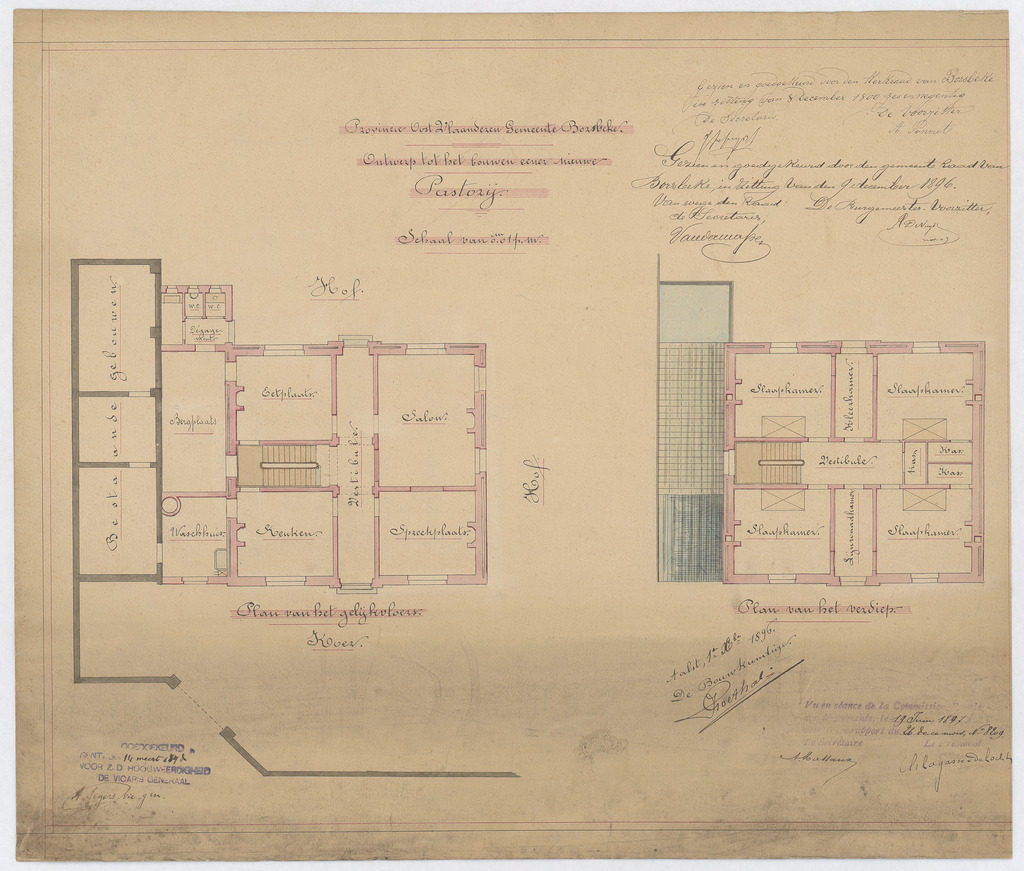 Gezien en goedgekeurd door den Kerkraad van Borsbeke
in zitting van 8 December
De Secretaris
De Voorzitter
Provincie Oost Vlaanderen Gemeente Borsbeke.
Ontwerp tot het bouwen eener nieuwe
Pastorij.
Schaal van 0.01 p.m.
Gezien en goedgekeurd door den gemeente Raad van
Borsbeke, in zitting van den 9 december 1896.
Van wege den Raad:
De Burgemeester-Voorzitter,
de Secretaris,
Hof.
Bestaande gebouwen
W.C.
W.C.
Dégagement
Bergplaats
Eetplaats.
Salon.
Vestibule.
Waschhuis
Keuken.
Spreekplaats.
Hof.
Plan van het gelijkvloers.
Koer.
Slaapkamer.
Kleerkamer.
Slaapkamer.
Vestibule.
Kas.
Kas.
Kas.
Slaapkamer.
Lijnwaadkamer
Slaapkamer.
Plan van het verdiep.
Aalst, 1896.
De Bouwkundige.
GOEDGEKEURD
GENT, den 14 meert
VOOR Z. D. HOOGWEERDIGHEID
DE VICARIS GENERAAL
Vu en séance de la Commission
le 19 Juin 1897
rapport du 26 decembre, No
Le Secrétaire